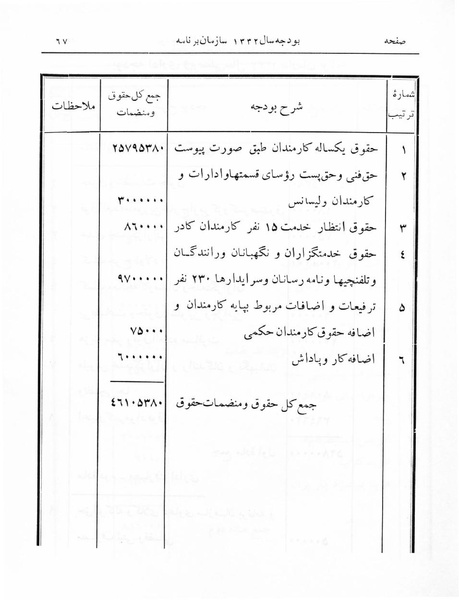 صفحه بودجه سال ۱۳۳۲ سازمان برنامه ۶۷
شمارهٔ ترتیب شرح بودجه جمع کل حقوق ومنضمات ملاحظات
۱ حقوق یکساله کارمندان طبق صورت پیوست ۲۵۷۹۵۳۸۰
۲ حق فنی وحق پست رؤسای قسمتها وادارات و
کارمندان رلیسانس ۳۰۰۰۰۰۰
۳ حقوق انتظار خدمت ۱۵ نفر کارمندان کادر ۸۶۰۰۰۰
۴ حقوق خدمتگزاران و نگهبانان ورانندگان
وتلفنچیها ونامه رسانان وسرایدارها ۲۳۰ نفر ۹۷۰۰۰۰۰
۵ ترفیعات و اضافات مربوط بپایه کارمندان و
اضافه حقوق کارمندان حکمی ۷۵۰۰۰۰
۶ اضافه کار و پاداش ۶۰۰۰۰۰۰
جمع کل حقوق و منضمات حقوق ۴۶۱۰۵۳۸۰